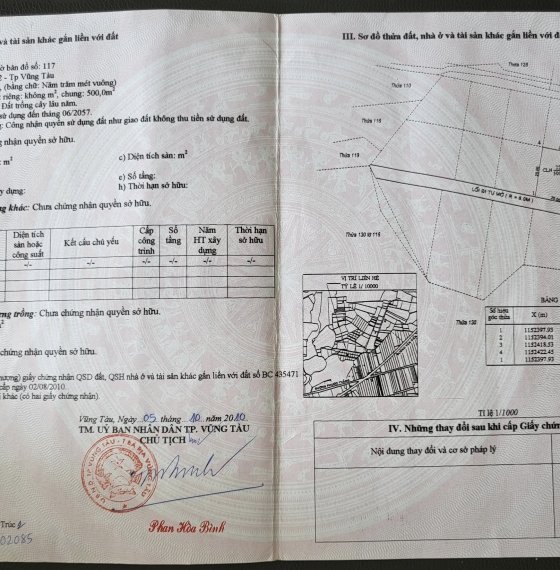 và tài sản khác gắn liền với đất
ờ bản đồ số: 117
- Tp Vũng Tàu
, (bằng chữ: Năm trăm mét vuông)
riêng: không m², chung: 500,0m²
Đất trồng cây lâu năm.
sử dụng đến tháng 06/2057.
g: Công nhận quyền sử dụng đất như giao đất không thu tiền sử dụng đất.
ng nhận quyền sở hữu.
m²
c) Diện tích sàn: m²
e) Số tầng:
ây dựng:
h) Thời hạn sở hữu:
ng khác: Chưa chứng nhận quyền sở hữu.
Diện tích sàn hoặc công suất
Kết cấu chủ yếu
Cấp công trình
Số tầng
Năm HT xây dựng
Thời hạn sở hữu
-/- -/- -/- -/- -/- -/-
ừng trồng: Chưa chứng nhận quyền sở hữu.
m²
chứng nhận quyền sở hữu.
hương) giấy chứng nhận QSD đất, QSH nhà ở và tài sản khác gắn liền với đất số BC 435471
cấp ngày 02/08/2010.
khác (có hai giấy chứng nhận).
Vũng Tàu, ngày 05 tháng 10 năm 2010
TM. UỶ BAN NHÂN DÂN TP. VŨNG TÀU
CHỦ TỊCH
Phan Hòa Bình
Trúc
02085
III. Sơ đồ thửa đất, nhà ở và tài sản khác gắn liền với đ
Thửa 126
Thửa 110
Thửa 118
Thửa 119
CLN
LỐI ĐI TỰ MỞ ( R = 6.0M )
Thửa 130
VỊ TRÍ LIÊN HỆ
TỶ LỆ 1/ 10000
Thửa 135
BẢNG
Số hiệu góc thửa
X (m)
1 1152397.93
2 1152394.01
3 1152418.53
4 1152422.45
1 1152397.93
Tỉ lệ 1/1000
IV. Những thay đổi sau khi cấp Giấy chứn
Nội dung thay đổi và cơ sở pháp lý